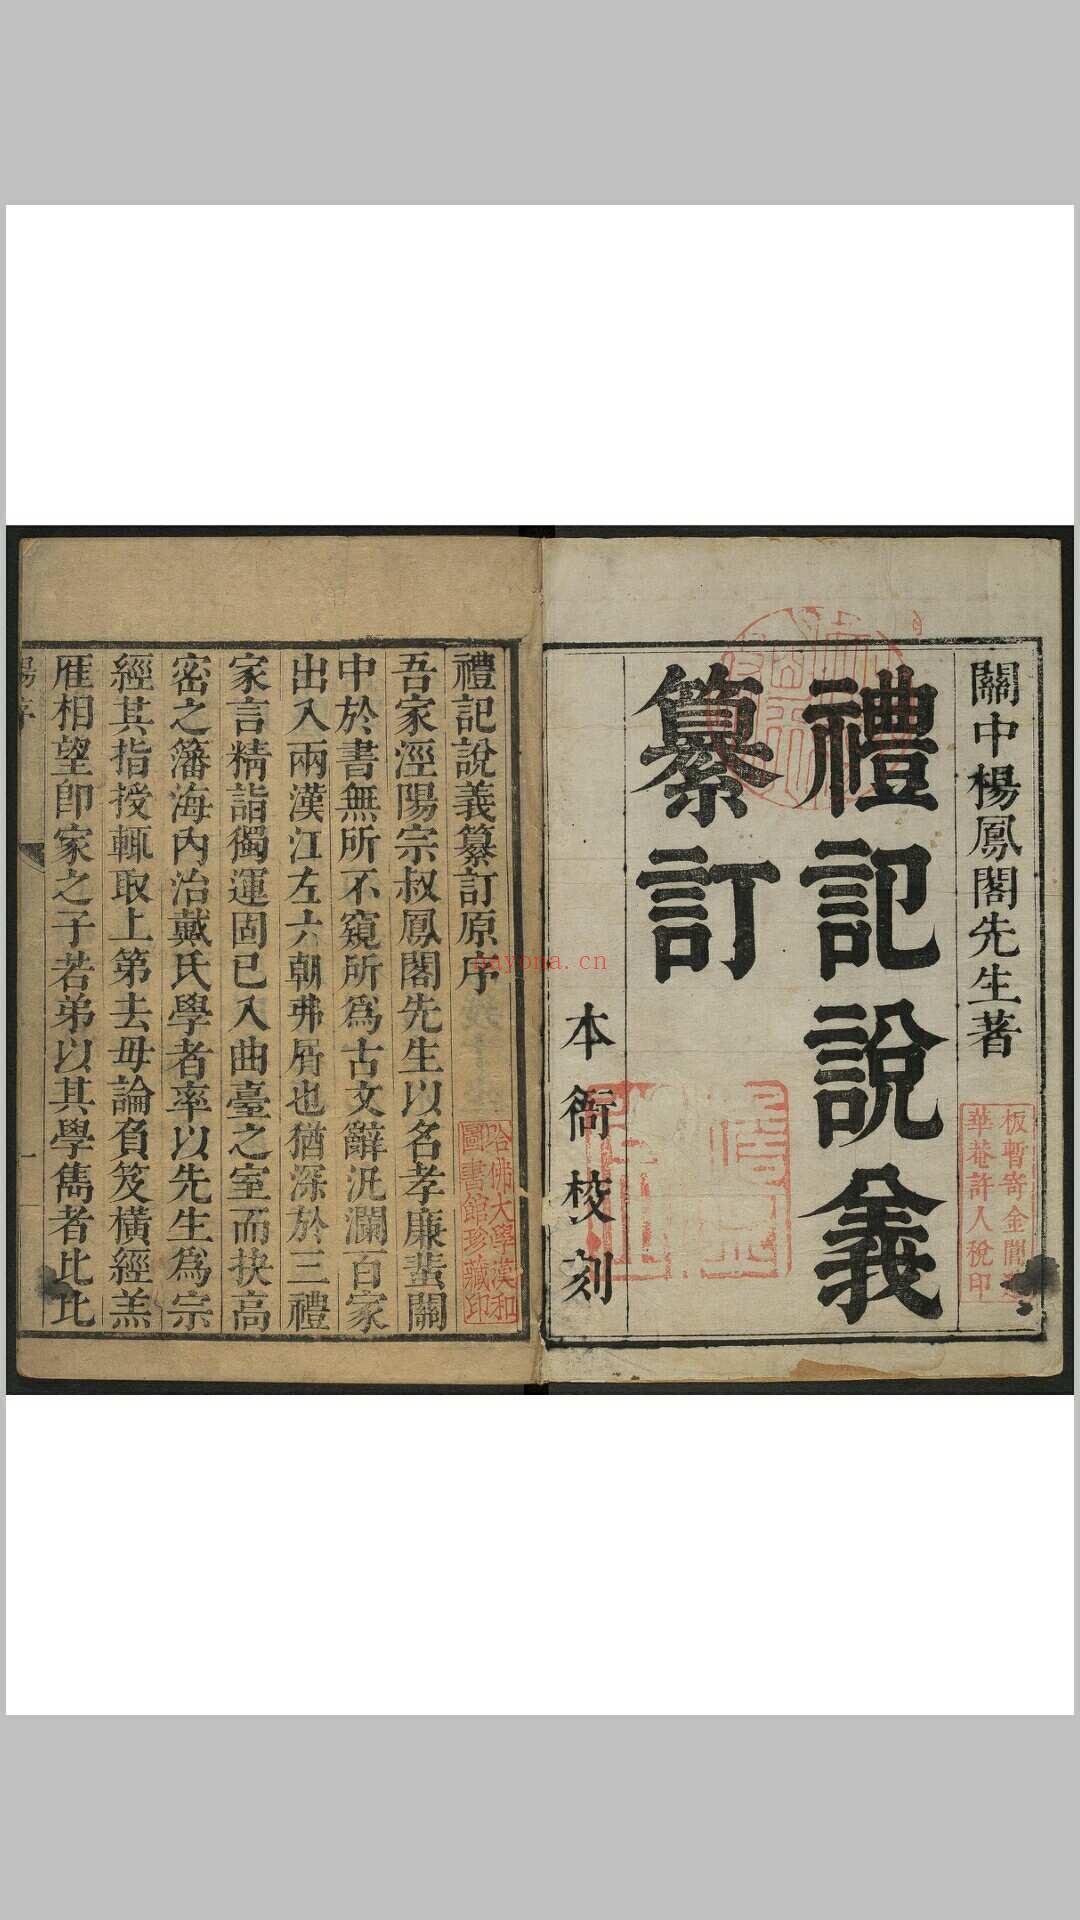 關中楊鳳閣先生著
禮記說義
纂訂
本衙校刻
板暫寄金閶
華菴許人稅印
禮記說義纂訂原序
吾家涇陽宗叔鳳閣先生以名孝廉蜚關
中於書無所不窺所爲古文辭汎瀾百家
出入兩漢江左六朝弗屑也猶深於三禮
家言精詣獨運固已入曲臺之室而抉高
密之籓海內治戴氏學者率以先生爲宗
經其指授輒取上第去毋論負笈橫經羔
雁相望卽家之子若弟以其學雋者比比
楊序
一
哈佛大學漢和
圖書館珍藏印
nayona.cn